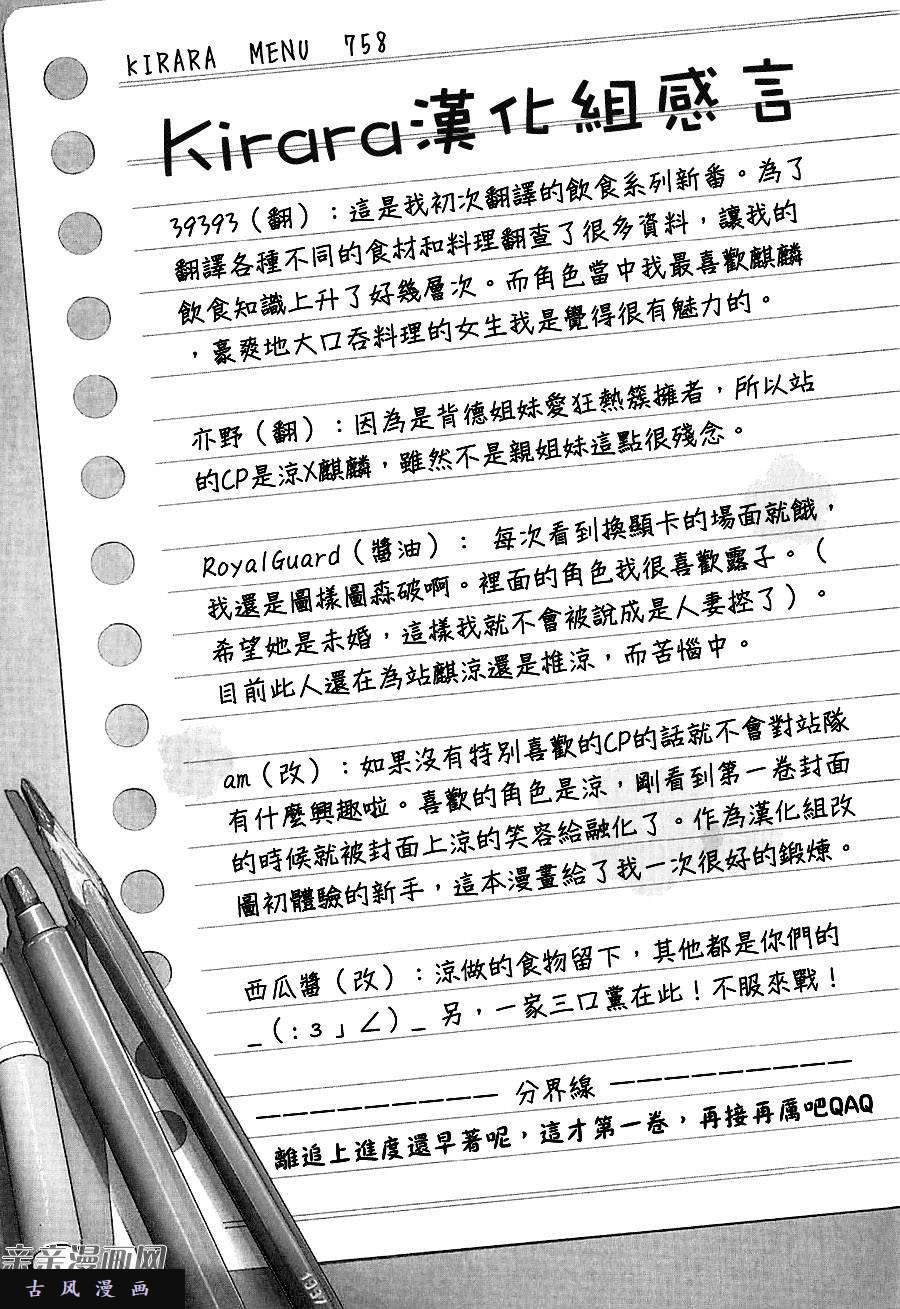 KIRARA MENU 758
Kirara漢化組感言
39393（翻）：這是我初次翻譯的飲食系列新番。為了
翻譯各種不同的食材和料理翻查了很多資料，讓我的
飲食知識上升了好幾層次。而角色當中我最喜歡麒麟
，豪爽地大口吞料理的女生我是覺得很有魅力的。
亦野（翻）：因為是背德姐妹愛狂熱簇擁者，所以站
的CP是涼X麒麟，雖然不是親姐妹這點很殘念。
RoyalGuard（醬油）： 每次看到換顯卡的場面就餓，
我還是圖樣圖森破啊。裡面的角色我很喜歡露子。（
希望她是未婚，這樣我就不會被說成是人妻控了）。
目前此人還在為站麒涼還是推涼，而苦惱中。
am（改）：如果沒有特別喜歡的CP的話就不會對站隊
有什麼興趣啦。喜歡的角色是涼，剛看到第一卷封面
的時候就被封面上涼的笑容給融化了。作為漢化組改
圖初體驗的新手，這本漫畫給了我一次很好的鍛煉。
西瓜醬（改）：涼做的食物留下，其他都是你們的
_（:з」∠）_ 另，一家三口黨在此！不服來戰！
————————— 分界線 —————————
離追上進度還早著呢，這才第一卷，再接再厲吧QAQ
1937
亲亲漫画网
古风漫画